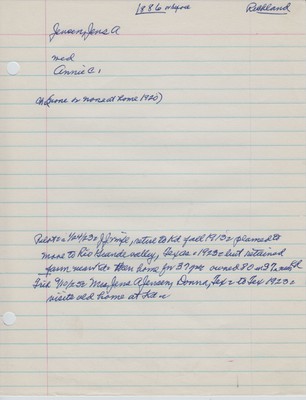 1886 or before Rockland
Jensen, Jens A
md
Annie C.,
ch (none or none at home 1920)
1/24/23 & wife, retire to Kd fall 1913 planned to
move to Rio Grande valley, Texas 1923 but retained
farm near Kd their home for 37 yrs owned 80 in 37
7/10/23 Mrs Jens A Jensen, Donna, Tex to Tex 1923
visits old home at Kd